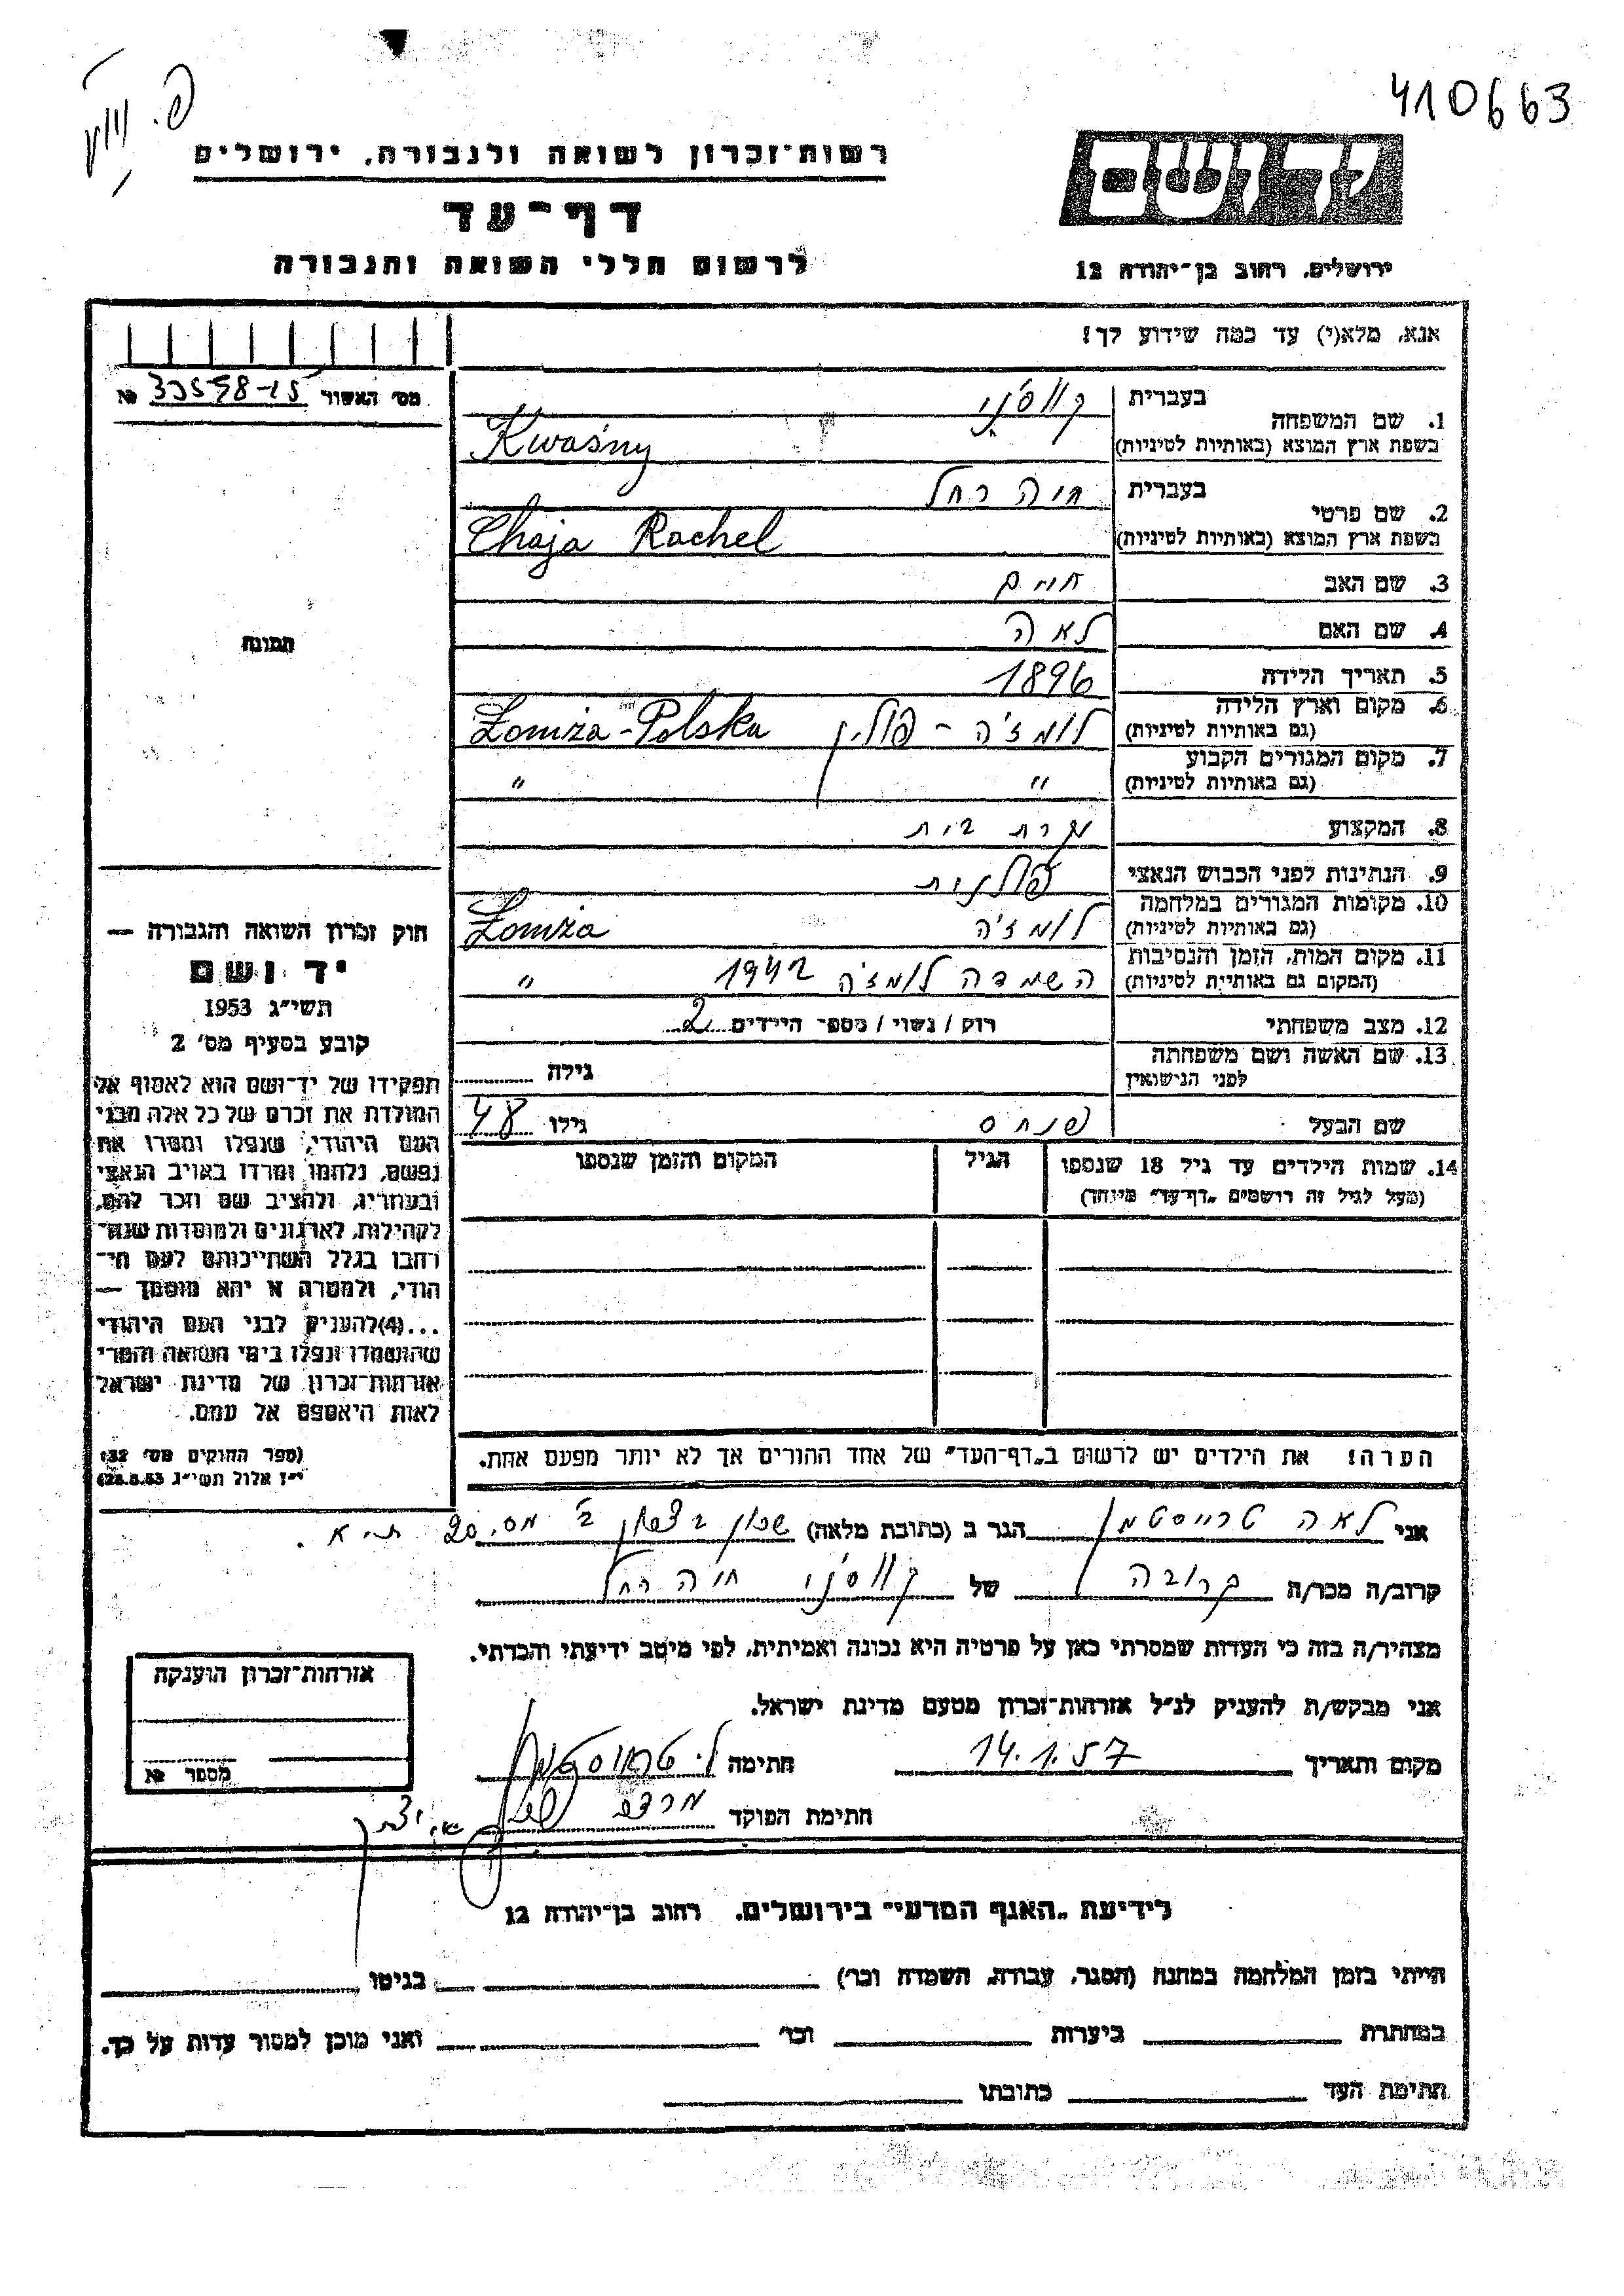 410663
רשות־זכרון לשואה ולגבורה, ירושלים
יד ושם
דף־עד
לרשום חללי השואה והגבורה
ירושלים, רחוב בן־יהודה 12
אנא, מלא(י) עד כמה שידוע לך!
מס׳ האשור №
1. שם המשפחה
בעברית
בשפת ארץ המוצא (באותיות לטיניות) Kwaśny
2. שם פרטי
בעברית חיה רחל
בשפת ארץ המוצא (באותיות לטיניות) Chaja Rachel
3. שם האב חיים
4. שם האם לאה
5. תאריך הלידה 1896
6. מקום וארץ הלידה (גם באותיות לטיניות) לומז׳ה - פולין Łomża-Polska
7. מקום המגורים הקבוע (גם באותיות לטיניות) " "
8. המקצוע עקרת בית
9. הנתינות לפני הכבוש הנאצי פולנית
10. מקומות המגורים במלחמה (גם באותיות לטיניות) לומז׳ה Łomża
11. מקום המות, הזמן והנסיבות (המקום גם באותיות לטיניות) השמדה לומז׳ה 1942 "
12. מצב משפחתי רווק / נשוי / מספר הילדים 2
13. שם האשה ושם משפחתה לפני הנישואין גילה
שם הבעל פנחס גילו 48
14. שמות הילדים עד גיל 18 שנספו (מעל לגיל זה רושמים „דף־עד״ מיוחד) הגיל המקום והזמן שנספו
הערה! את הילדים יש לרשום ב„דף־העד״ של אחד ההורים אך לא יותר מפעם אחת.
תמונה
חוק זכרון השואה והגבורה —
יד ושם
תשי״ג 1953
קובע בסעיף מס׳ 2
תפקידו של יד־ושם הוא לאסוף אל
המולדת את זכרם של כל אלה מבני
העם היהודי, שנפלו ומסרו את
נפשם, נלחמו ומרדו באויב הנאצי
ובעוזריו, ולהציב שם וזכר להם,
לקהילות, לארגונים ולמוסדות שנח־
רבו בגלל השתייכותם לעם הי־
הודי, ולמטרה זו יהא מוסמך —
...(4) להעניק לבני העם היהודי
שהושמדו ונפלו בימי השואה והמרי
אזרחות־זכרון של מדינת ישראל
לאות היאספם אל עמם.
(ספר החוקים מס׳ 132
י״ז אלול תשי״ג 28.8.53)
אני לאה טרייסטמן הגר ב (כתובת מלאה) שכון ביצרון ב׳ מס. 20 ת"א.
קרוב/ה מכר/ה קרובה של חיה רחל
מצהיר/ה בזה כי העדות שמסרתי כאן על פרטיה היא נכונה ואמיתית, לפי מיטב ידיעתי והכרתי.
אני מבקש/ת להעניק לנ״ל אזרחות־זכרון מטעם מדינת ישראל.
מקום ותאריך 14.1.57 חתימה ל. טרייסטמן
חתימת הפוקד מרדכי
אזרחות־זכרון הוענקה
מספר №
לידיעת „האגף המדעי״ בירושלים, רחוב בן־יהודה 12
הייתי בזמן המלחמה במחנה (הסגר, עבודה, השמדה וכו׳) בגיטו
במחתרת ביערות וכו׳ ואני מוכן למסור עדות על כך.
חתימת העד כתובתו